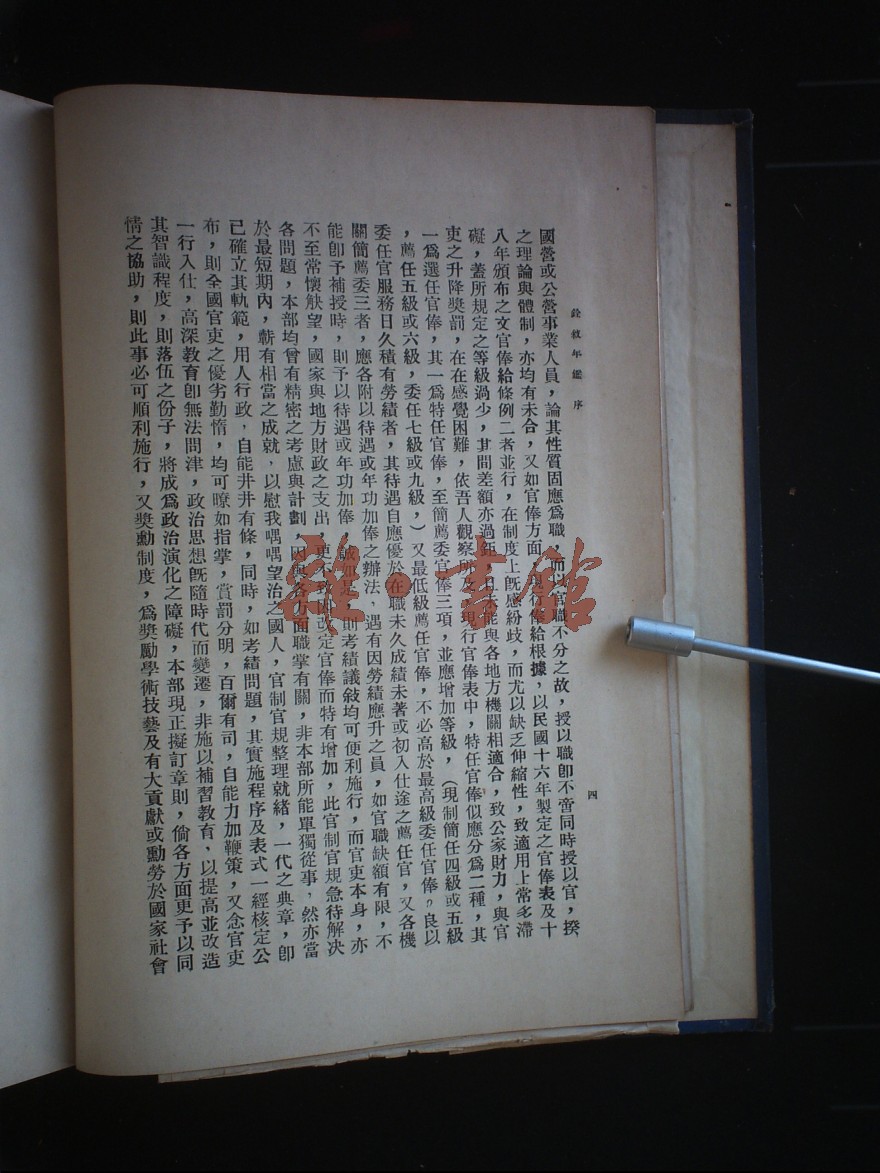 銓敘年鑑 序
四
國營或公營事業人員，論其性質固應爲職，而以官職不分之故，授以職卽不啻同時授以官，揆
之理論與體制，亦均有未合，又如官俸方面，現行俸給根據，以民國十六年製定之官俸表及十
八年頒布之文官俸給條例二者並行，在制度上旣感紛歧，而尤以缺乏伸縮性，致適用上常多滯
礙，蓋所規定之等級過少，其間差額亦過鉅，且未能與各地方機關相適合，致公家財力，與官
吏之升降獎罰，在在感覺困難，依吾人觀察所及，現行官俸表中，特任官俸似應分爲二種，其
一爲選任官俸，其一爲特任官俸，至簡薦委官俸三項，並應增加等級，（現制簡任四級或五級
，薦任五級或六級，委任七級或九級，）又最低級薦任官俸，不必高於最高級委任官俸，良以
委任官服務日久積有勞績者，其待遇自應優於在職未久成績未著或初入仕途之薦任官，又各機
關簡薦委三者，應各附以待遇或年功加俸之辦法，遇有因勞績應升之員，如官職缺額有限，不
能卽予補授時，則予以待遇或年功加俸，誠如是，則考績議敘均可便利施行，而官吏本身，亦
不至常懷觖望，國家與地方財政之支出，更不致因改定官俸而特有增加，此官制官規急待解決
各問題，本部均曾有精密之考慮與計劃，因與各方面職掌有關，非本部所能單獨從事，然亦當
於最短期內，蘄有相當之成就，以慰我喁喁望治之國人，官制官規整理就緒，一代之典章，卽
已確立其軌範，用人行政，自能井井有條，同時，如考績問題，其實施程序及表式一經核定公
布，則全國官吏之優劣勤惰，均可暸如指掌，賞罰分明，百爾有司，自能力加鞭策，又念官吏
一行入仕，高深敎育卽無法問津，政治思想旣隨時代而變遷，非施以補習敎育，以提高並改造
其智識程度，則落伍之份子，將成爲政治演化之障礙，本部現正擬訂章則，倘各方面更予以同
情之協助，則此事必可順利施行，又獎勳制度，爲獎勵學術技藝及有大貢獻或勳勞於國家社會
雜·書館